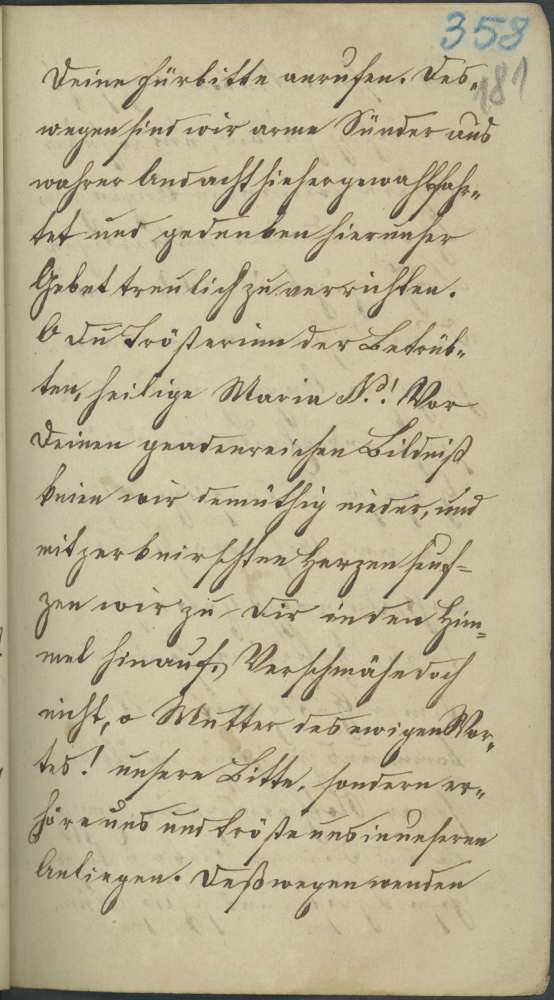 358
181
Deine Fürbitte anrufen. Des„
wegen sind wir arme Sünder aus
wahrer Andacht hieher gewahlfahr„
tet und gedenken hier unser
Gebet treulich zu verrichten.
O du Trösterinn der Betrüb„
ten, heilige Maria N.! Vor
Deinen gnadenreichen Bildniß
knien wir demüthig nieder, und
mit zerknirschten Herzen seuf=
zen wir zu Dir in den Him„
mel hinauf. Verschmähe doch
nicht, o Mutter des ewigen Wor„
tes! unsere Bitte, sondern er„
höre uns und tröste uns in unseren
Anliegen. Deßwegen wenden